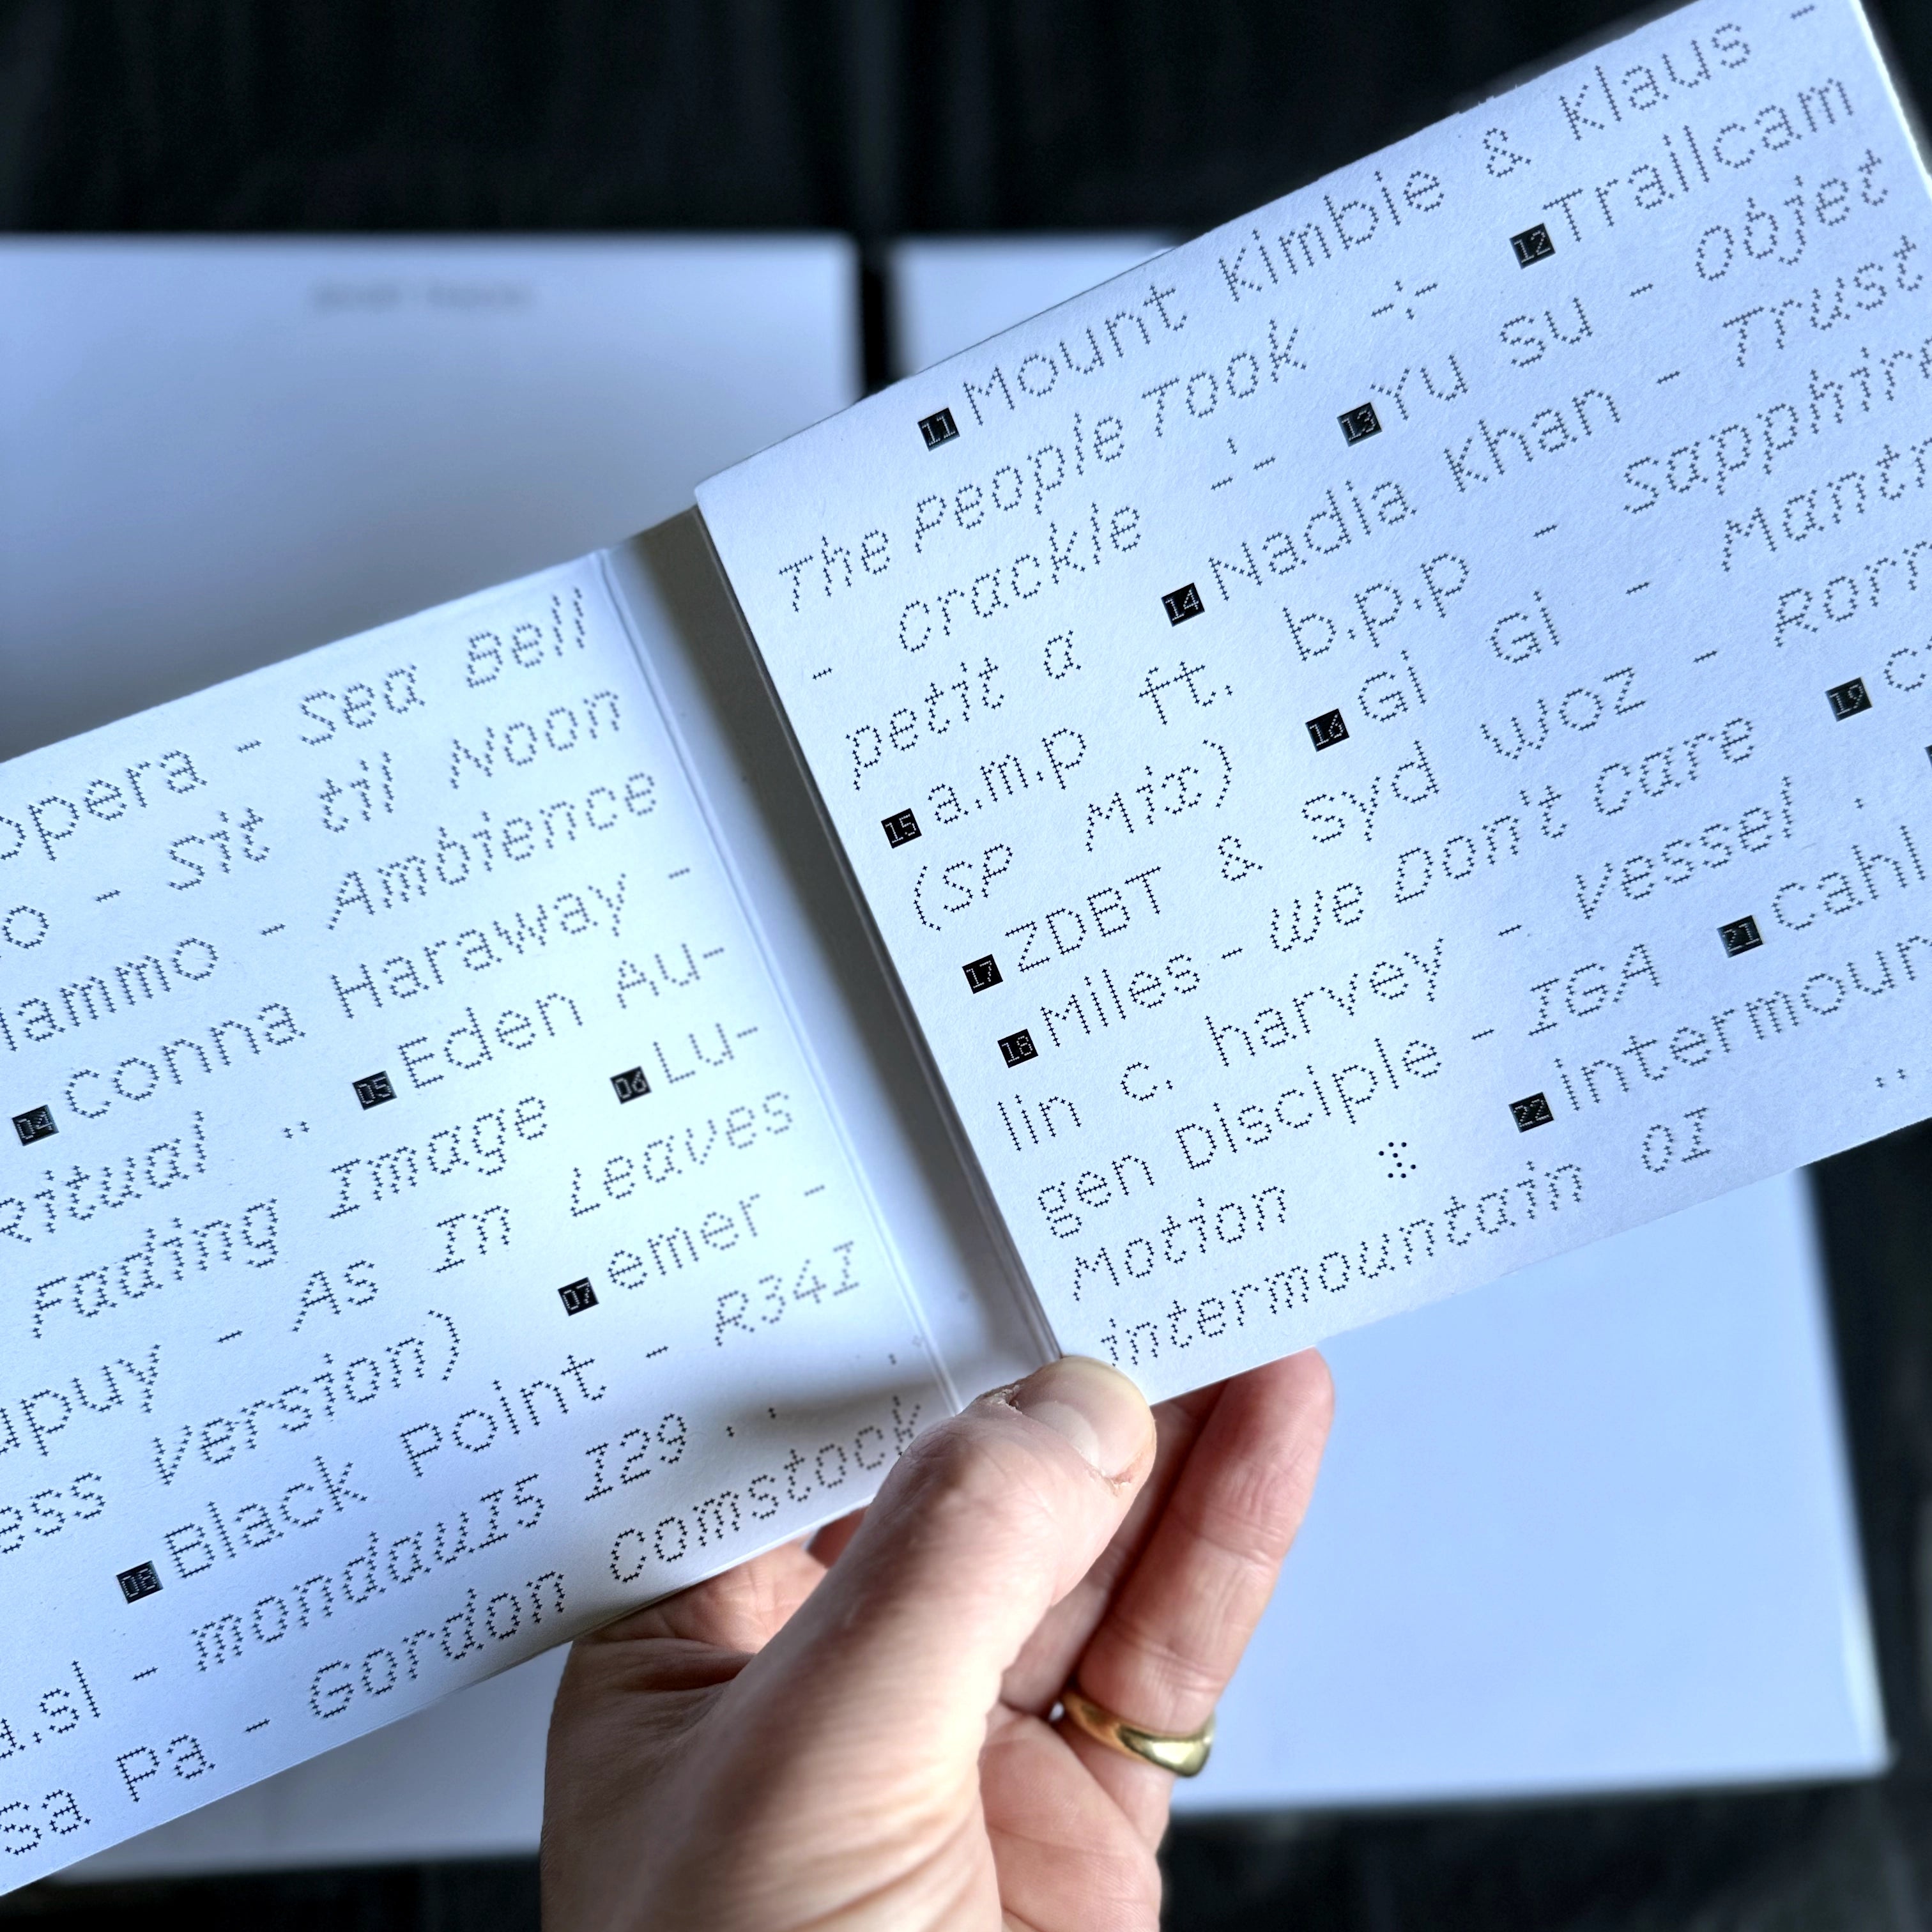 Sea Bell
- Sit til Noon
- Ambience
04 Conna Haraway -
Ritual 05 Eden Au-
Fading Image 06 Lu-
- As In Leaves
Version) 07 emer -
08 Black Point - R34I
- mondauI5 I29
Sa Pa - Gordon Comstock
11 Mount Kimbie & Klaus -
The People Took 12 Trailcam
- Crackle 13 Yu Su - Objet
petit a 14 Nadia Khan - Trust
15 a.m.p ft. b.p.p -
(SP Mix) 16 Gi Gi -
17 ZDBT & Syd WOZ -
18 Miles - We Don't Care 19
lin c. harvey - Vessel
gen Disciple - IGA 21
Motion 22
intermountain 0I